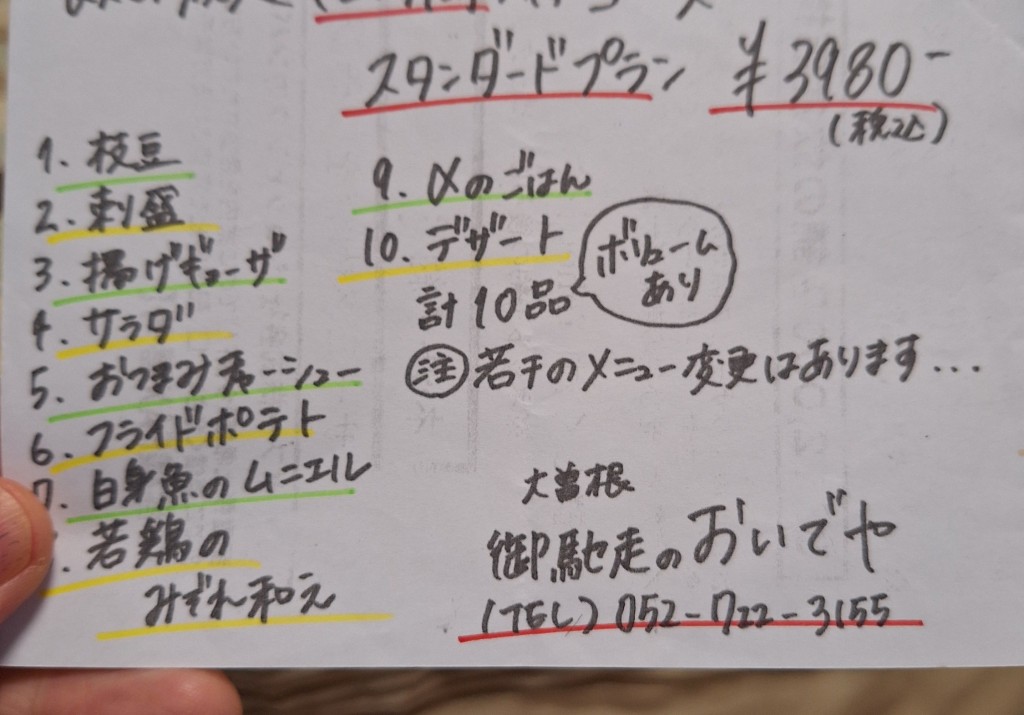 スタンダードプラン ¥3980-
(税込)
1. 枝豆
2. 刺盛
3. 揚げギョーザ
4. サラダ
5. おつまみチャーシュー
6. フライドポテト
7. 白身魚のムニエル
若鶏の
みぞれ和え
9. 〆のごはん
10. デザート
計10品
ボリューム
あり
注 若干のメニュー変更はあります...
大曽根
御馳走のおいでや
(TEL) 052-722-3155